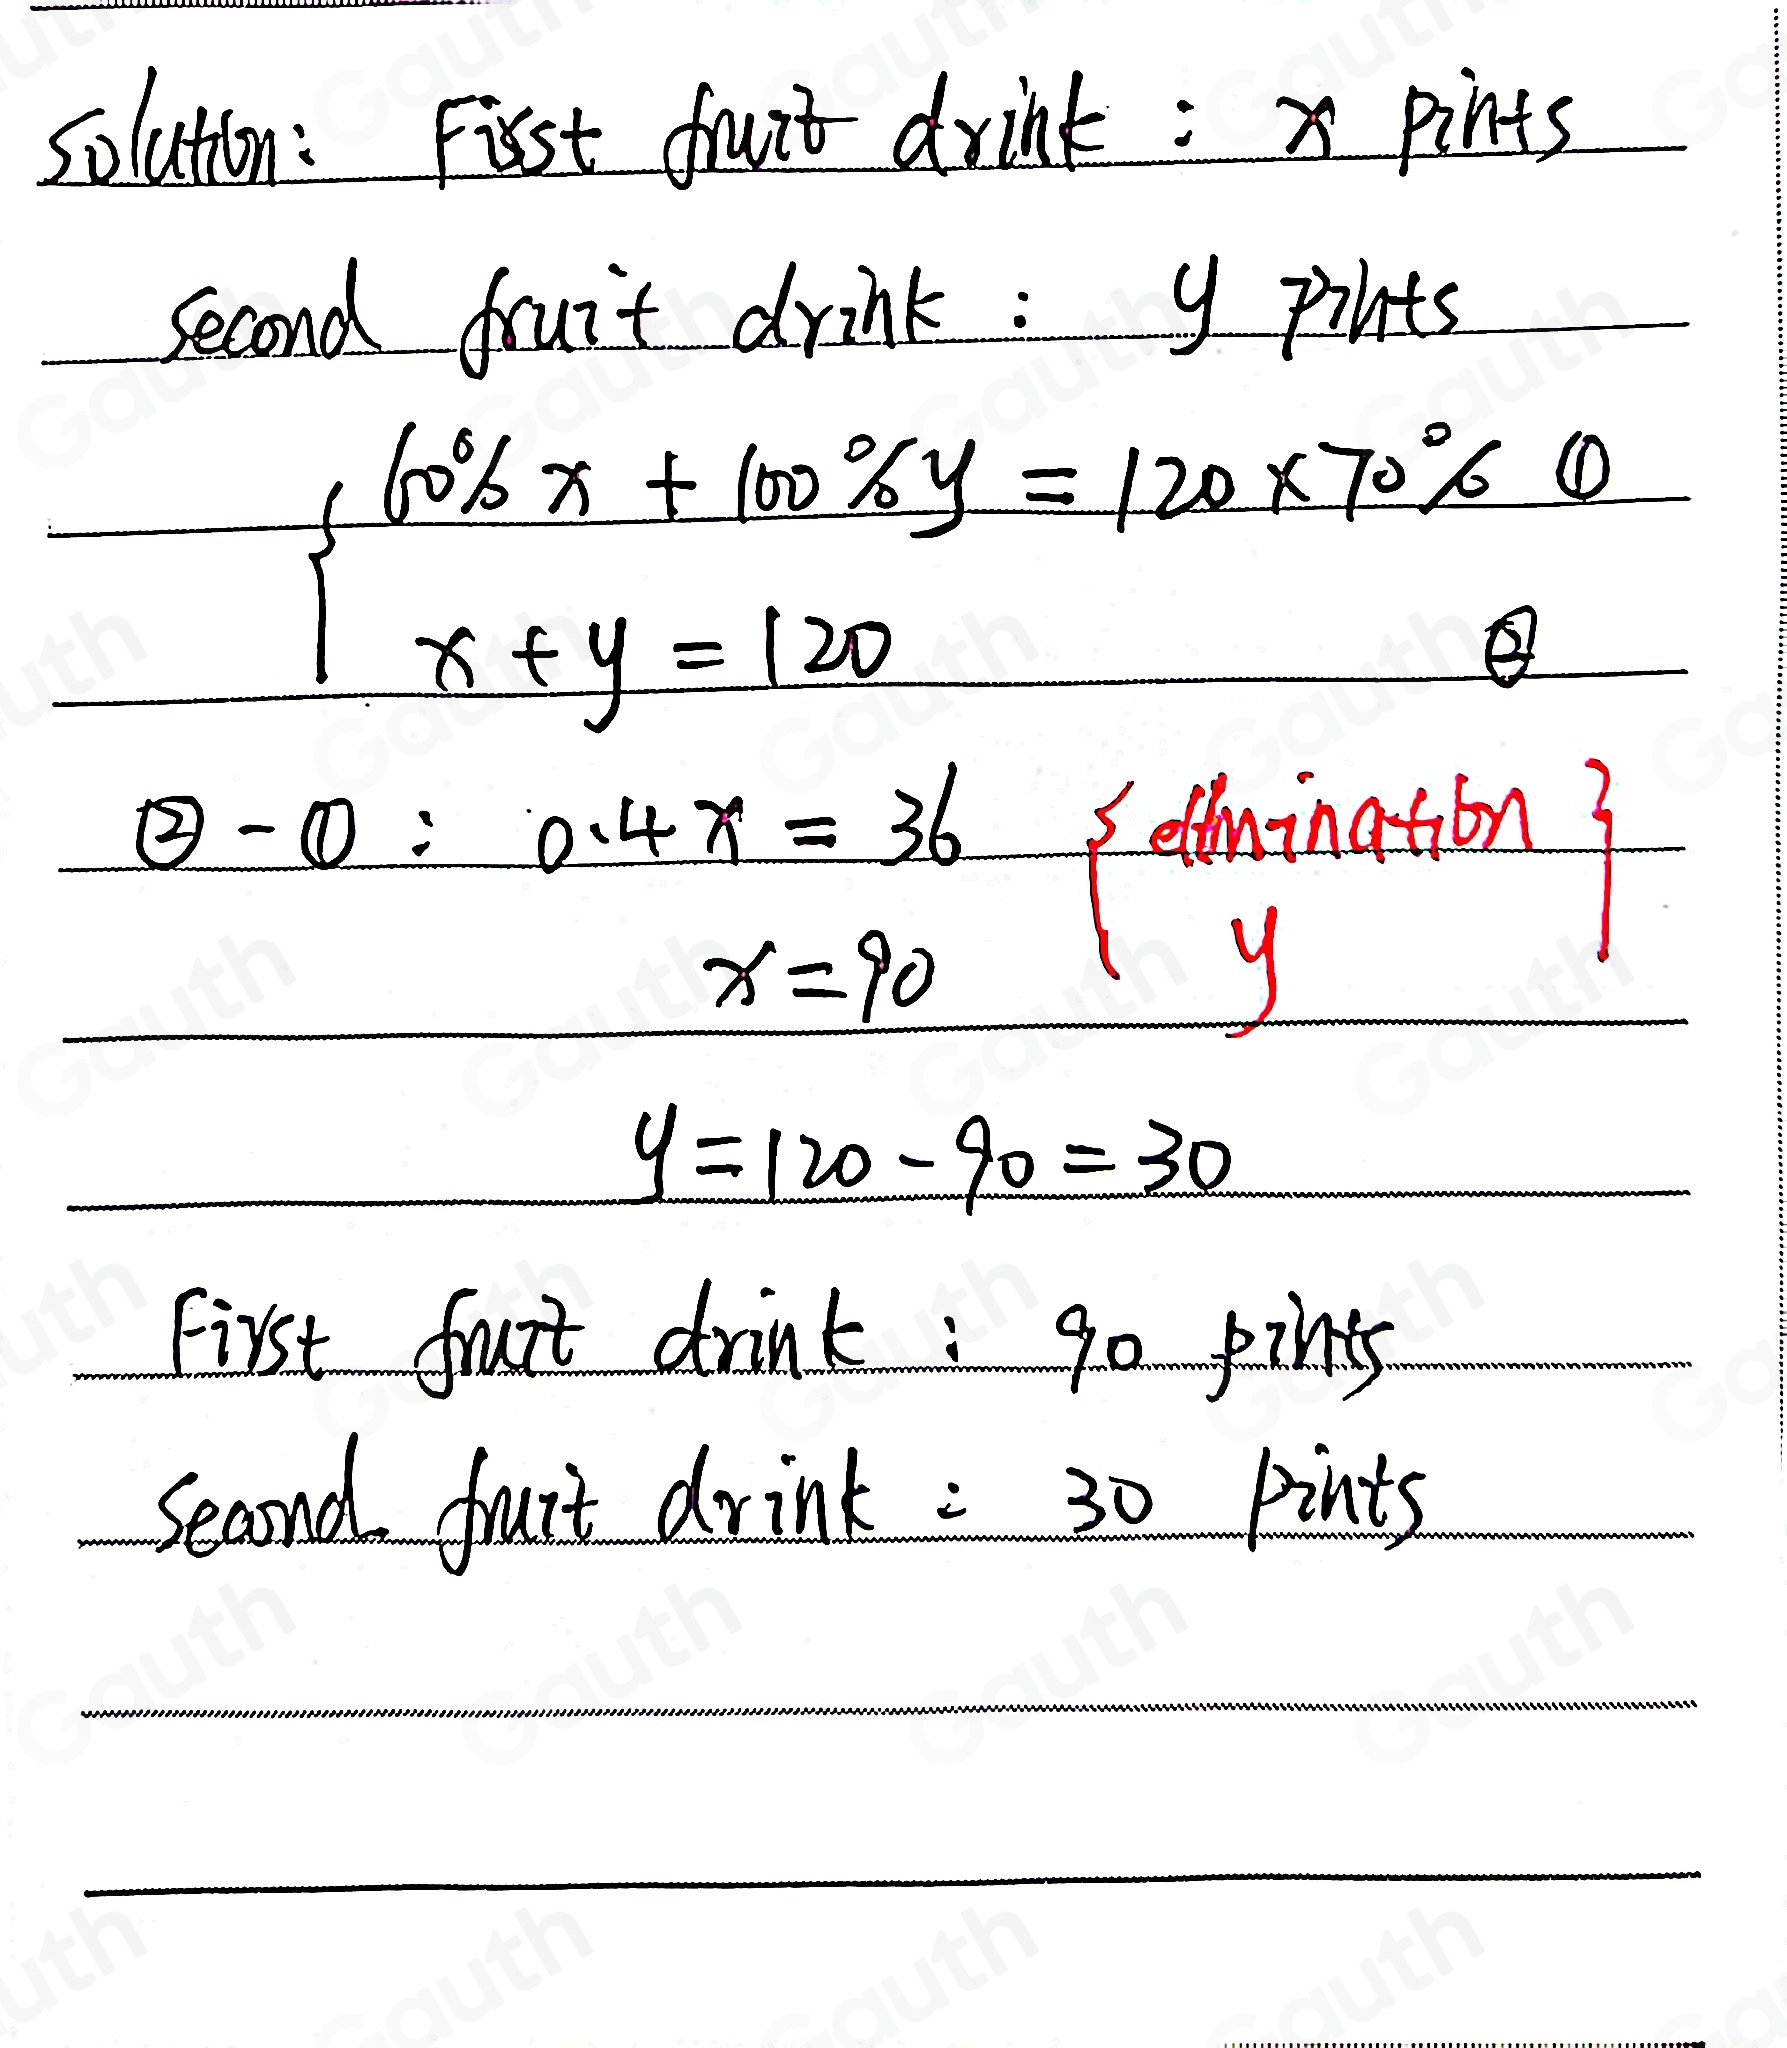 Solution: First fruit drink : x pints
second fruit drink : y pints
60% x + 100% y = 120 x 70% ①
x + y = 120 ②
② - ① : 0.4x = 36 { elimination y }
x = 90
y = 120 - 90 = 30
First fruit drink : 90 pints
second fruit drink : 30 pints
Gauth